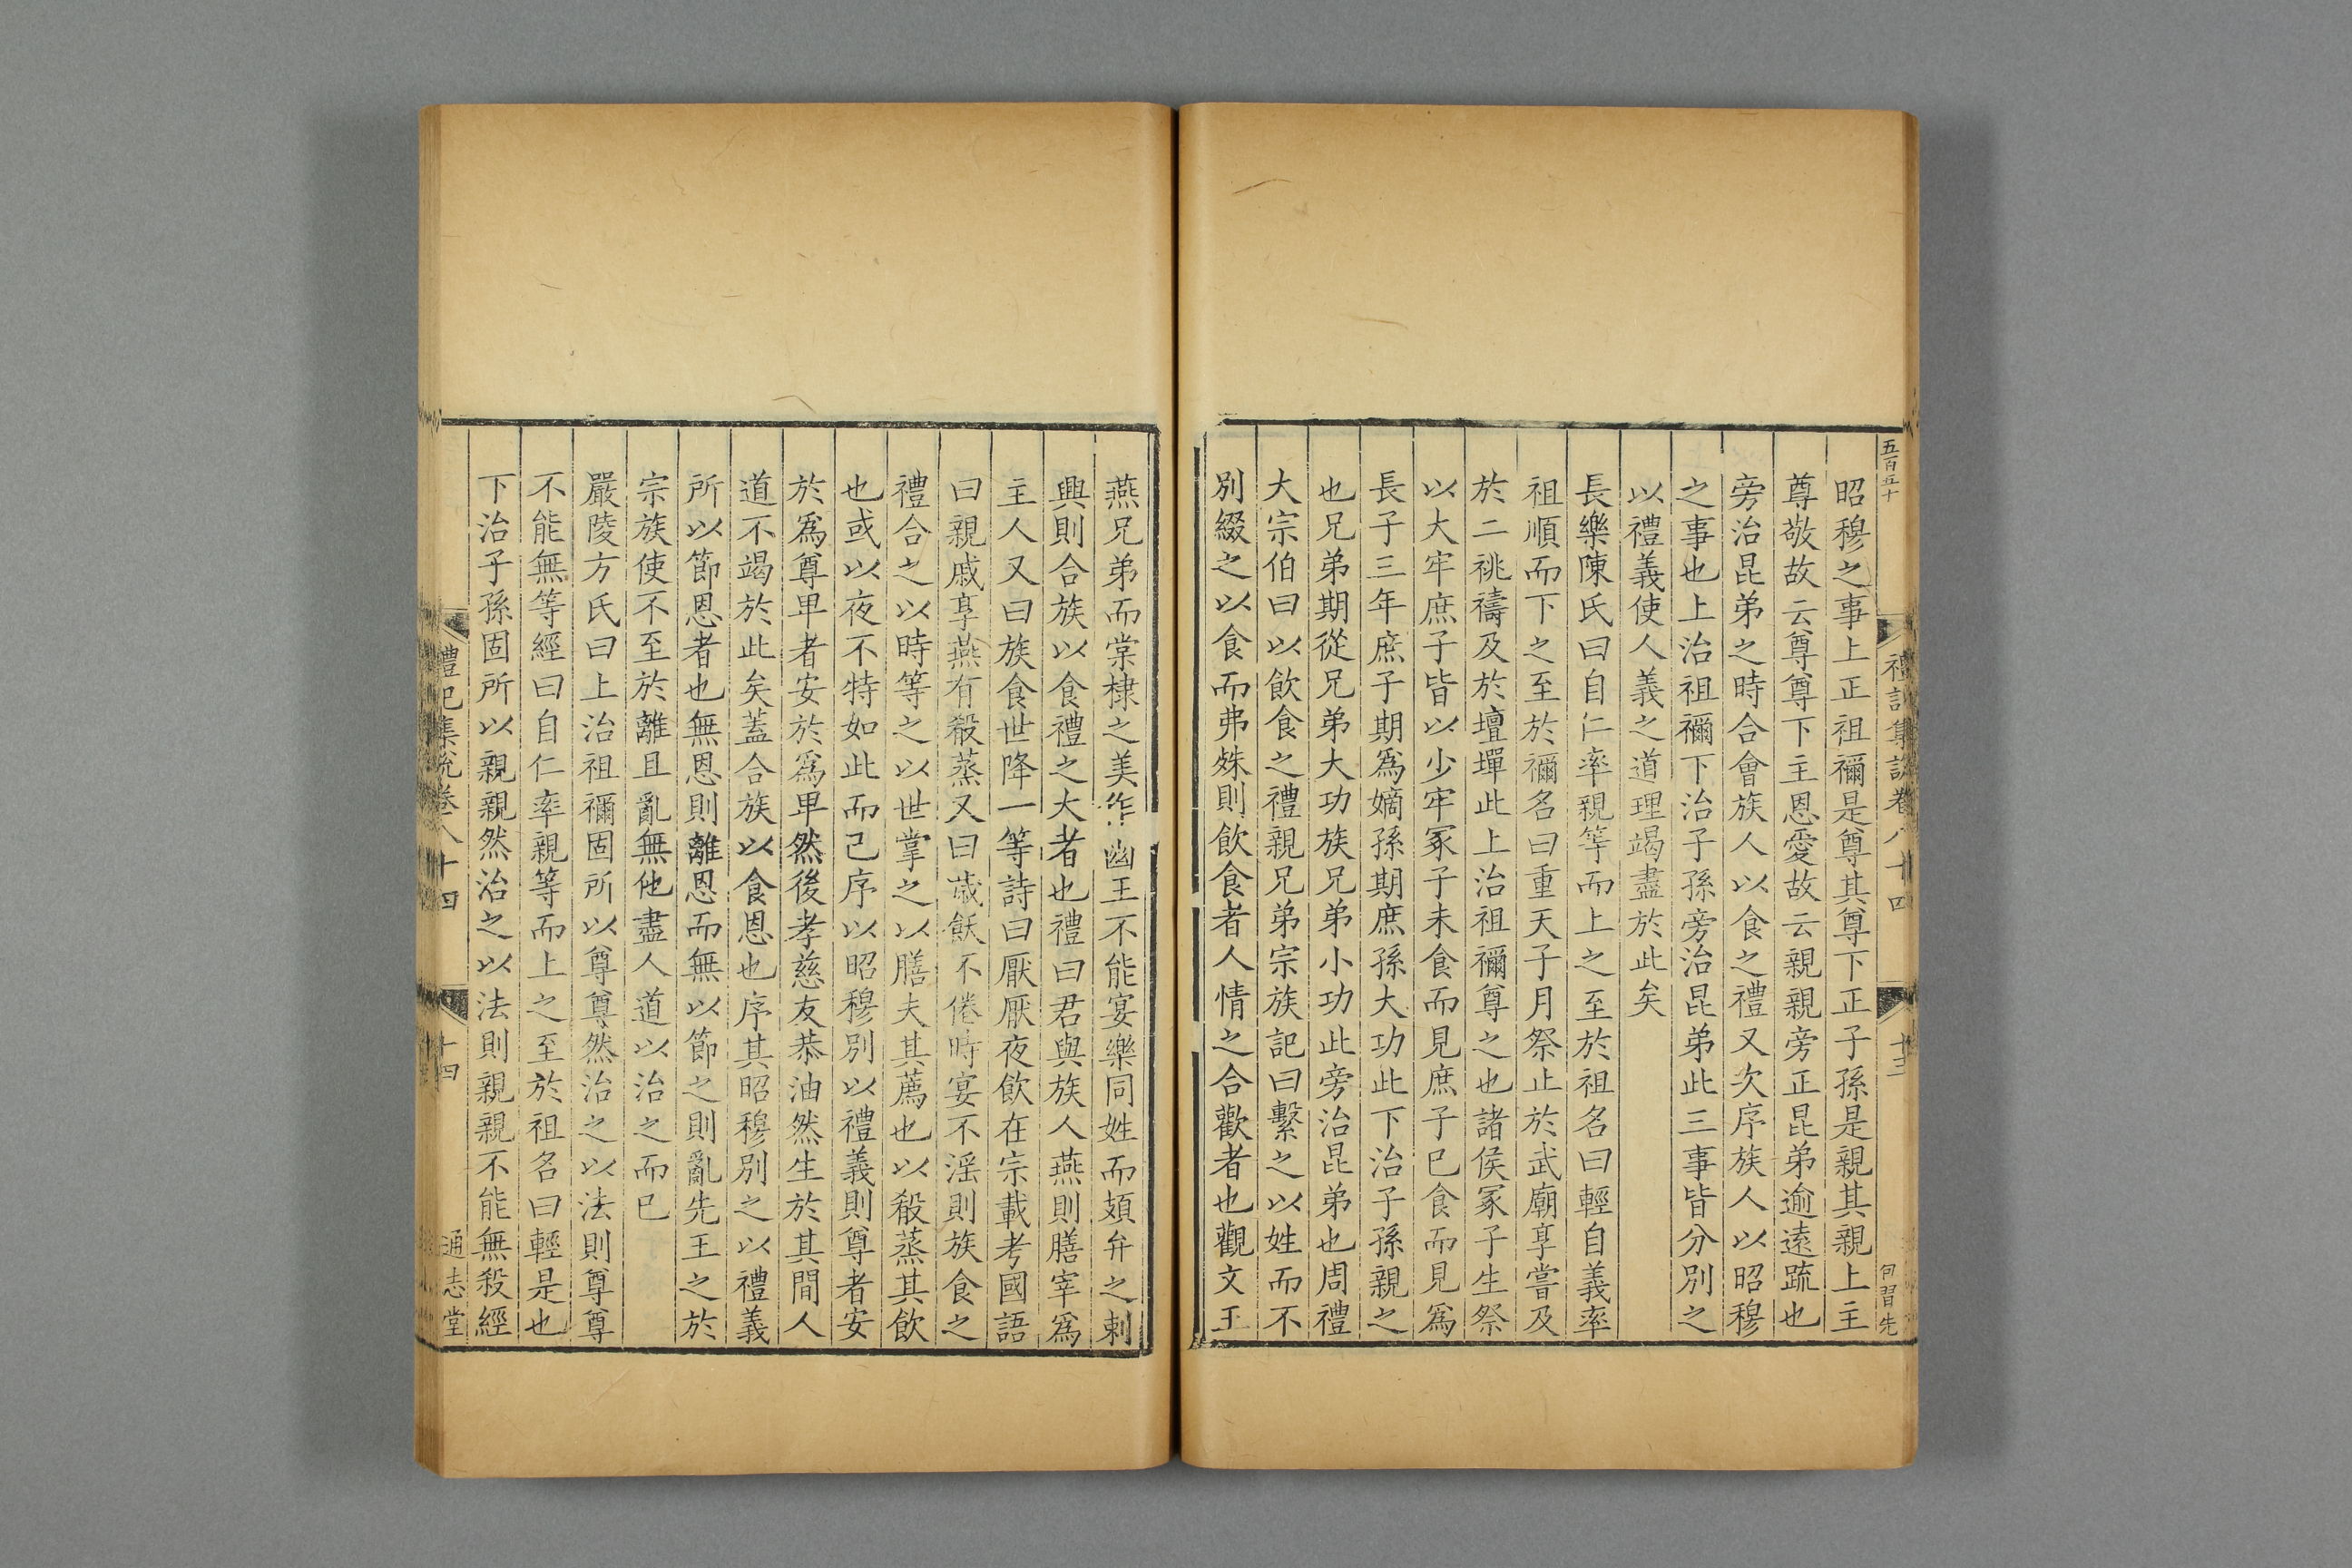 五百五十
禮記集說卷八十四
十三
何習先
昭穆之事上正祖禰是尊其尊下正子孫是親其親上主
尊敬故云尊尊下主恩愛故云親親旁正昆弟逾遠疏也
旁治昆弟之時合會族人以食之禮又次序族人以昭穆
之事也上治祖禰下治子孫旁治昆弟此三事皆分別之
以禮義使人義之道理竭盡於此矣
長樂陳氏曰自仁率親等而上之至於祖名曰輕自義率
祖順而下之至於禰名曰重天子月祭止於武廟享嘗及
於二祧禱及於壇墠此上治祖禰尊之也諸侯冢子生祭
以大牢庶子皆以少牢冢子未食而見庶子已食而見爲
長子三年庶子期爲嫡孫期庶孫大功此下治子孫親之
也兄弟期從兄弟大功族兄弟小功此旁治昆弟也周禮
大宗伯曰以飲食之禮親兄弟宗族記曰繫之以姓而不
別綴之以食而弗殊則飲食者人情之合歡者也觀文王
燕兄弟而棠棣之美作幽王不能宴樂同姓而頍弁之刺
興則合族以食禮之大者也禮曰君與族人燕則膳宰爲
主人又曰族食世降一等詩曰厭厭夜飲在宗載考國語
曰親戚享燕有殽蒸又曰歲飫不倦時宴不淫則族食之
禮合之以時等之以世掌之以膳夫其薦也以殽蒸其飲
也或以夜不特如此而已序以昭穆別以禮義則尊者安
於爲尊卑者安於爲卑然後孝慈友恭油然生於其間人
道不竭於此矣蓋合族以食恩也序其昭穆別之以禮義
所以節恩者也無恩則離恩而無以節之則亂先王之於
宗族使不至於離且亂無他盡人道以治之而已
嚴陵方氏曰上治祖禰固所以尊尊然治之以法則尊尊
不能無等經曰自仁率親等而上之至於祖名曰輕是也
下治子孫固所以親親然治之以法則親親不能無殺經
禮記集說卷八十四
十四
通志堂